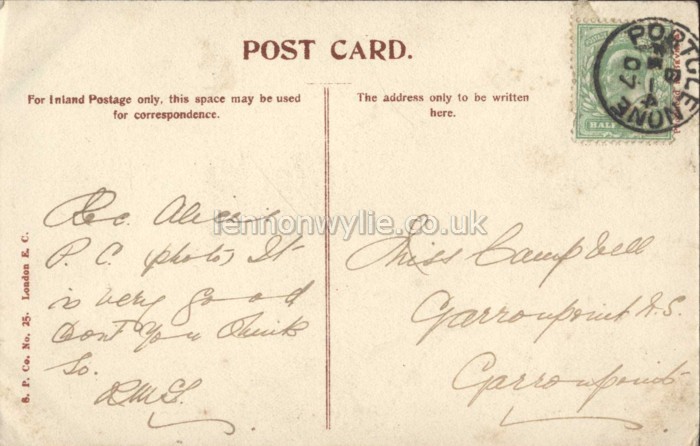 POST CARD.
For Inland Postage only, this space may be used
for correspondence.
The address only to be written
here.
Rec. Alice's
P. C. (photo) It
is very good
Dont You think
So.
Miss Campbell
Garronpoint N.S.
Garronpoint
S. P. Co. No. 25. London E. C.
PORTGLENONE
07
HALF
lennonwylie.co.uk